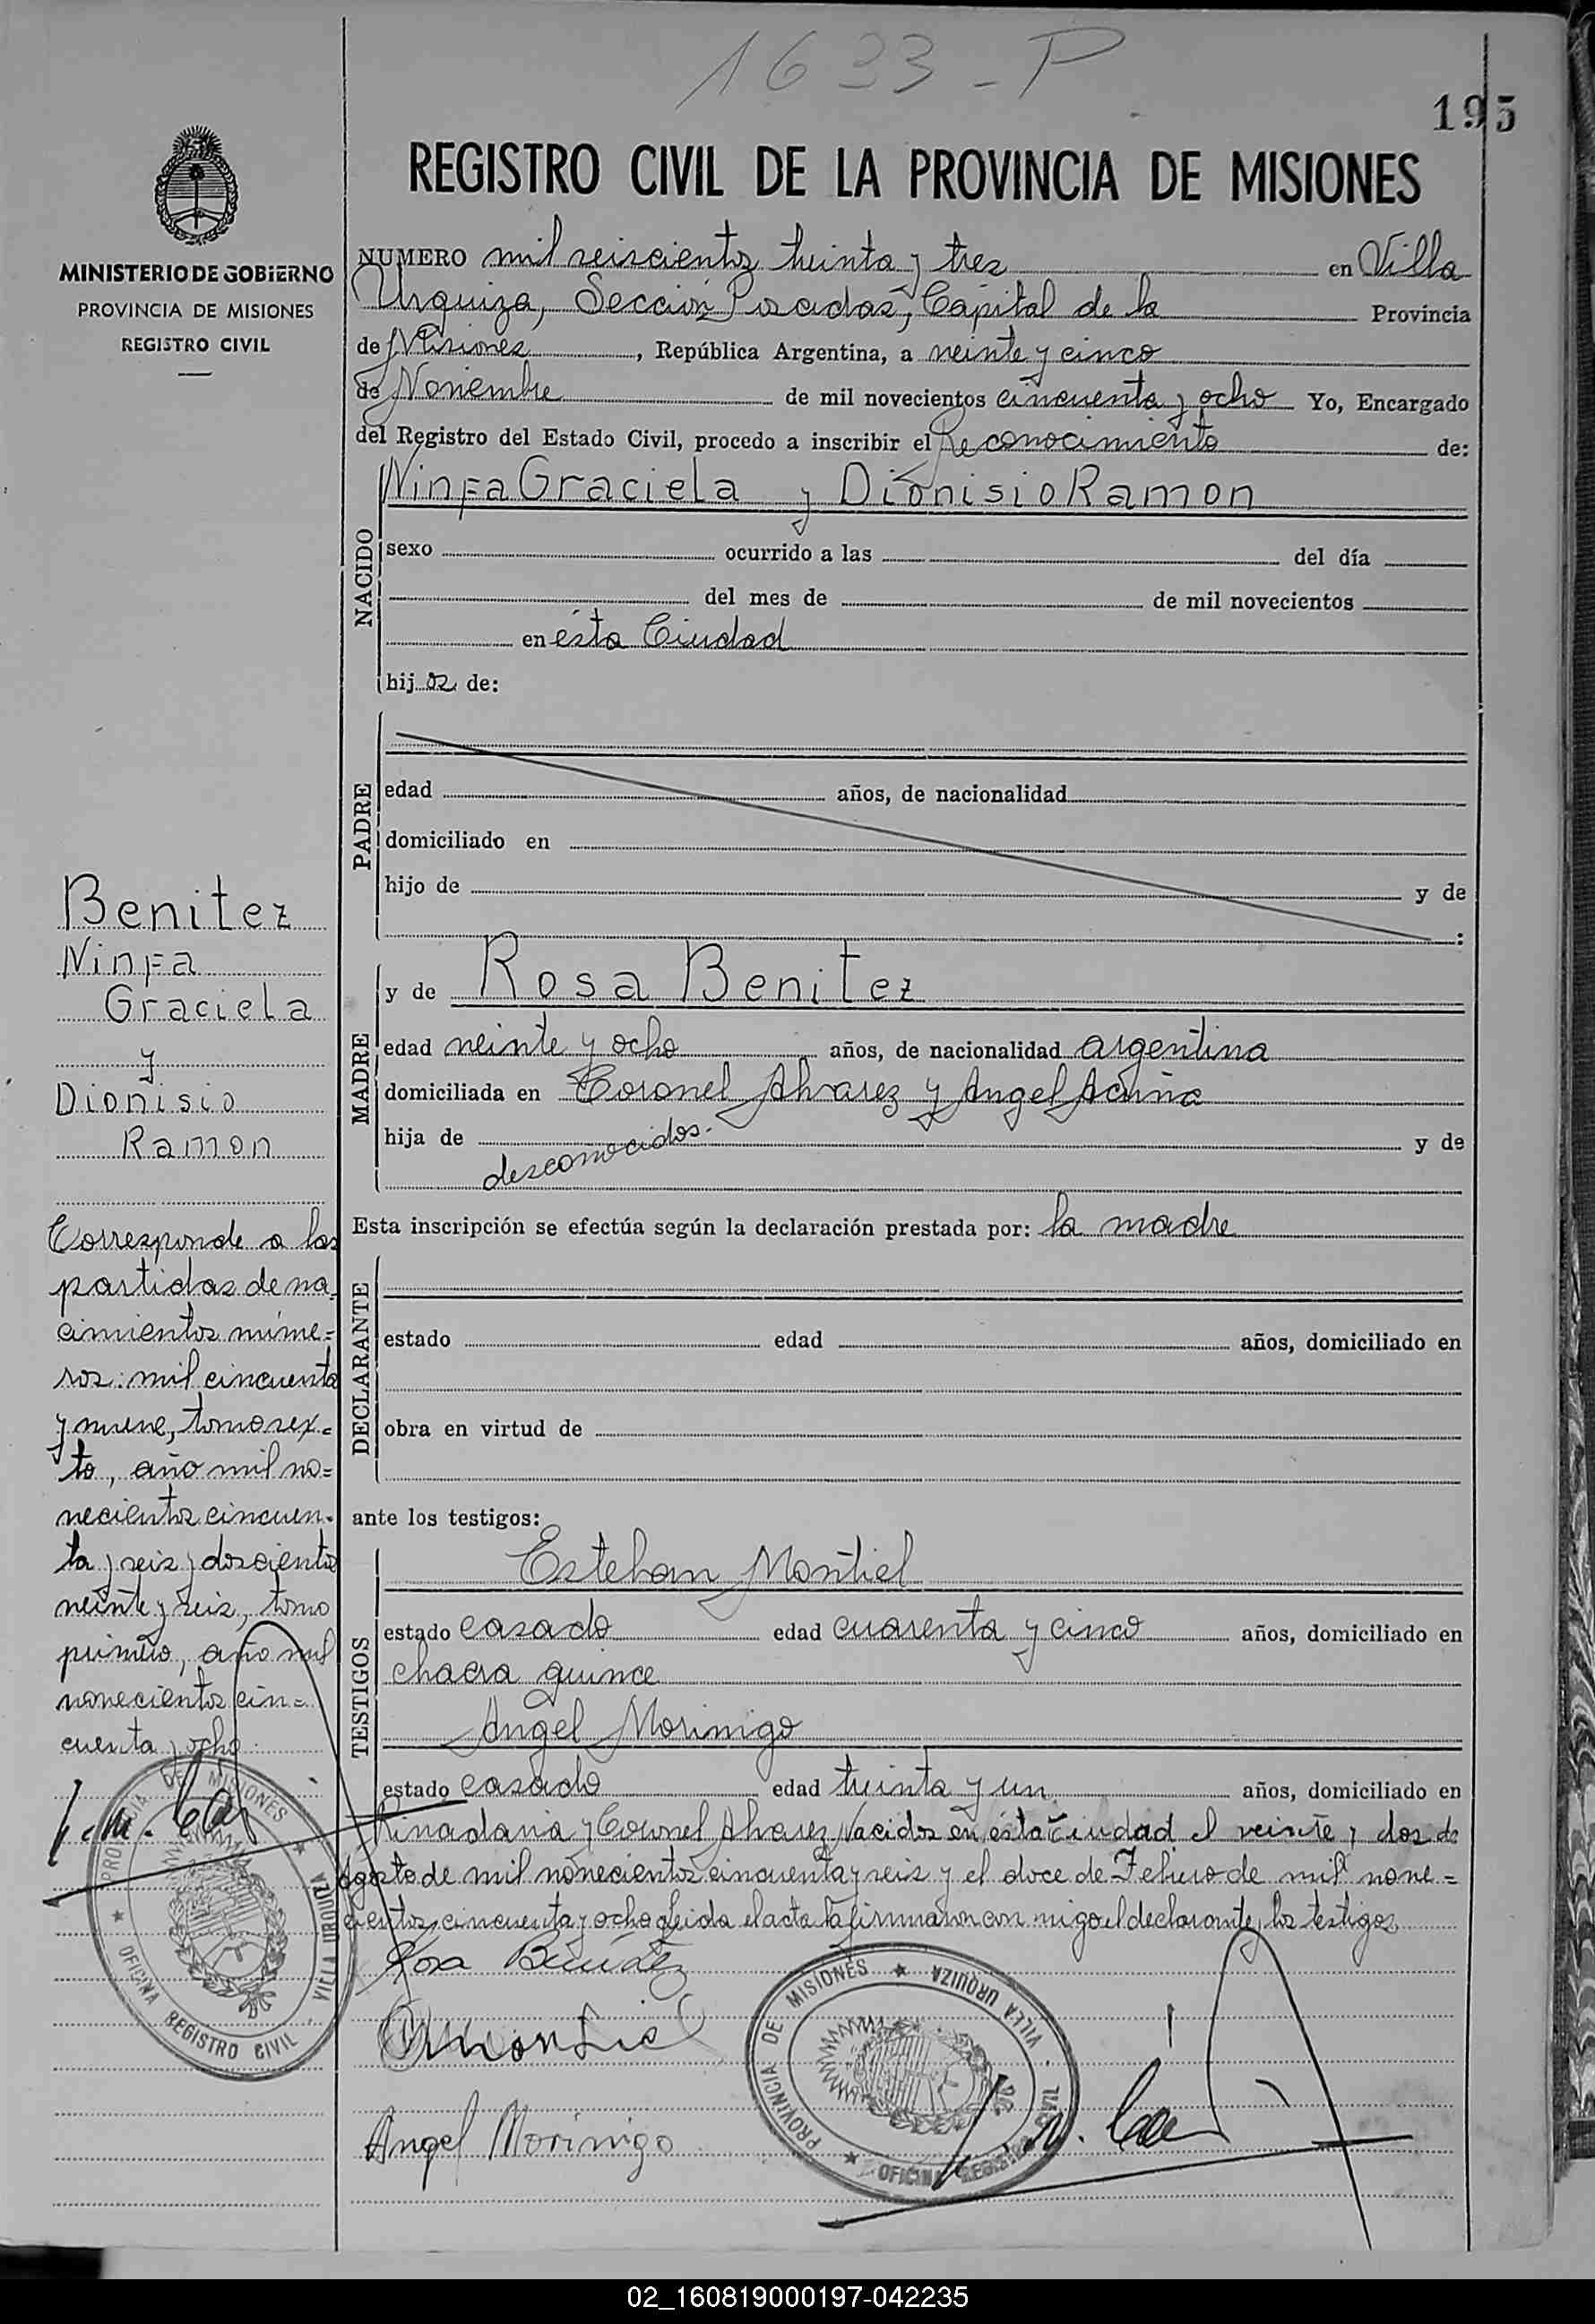 1633 - P
195
REGISTRO CIVIL DE LA PROVINCIA DE MISIONES
MINISTERIO DE GOBIERNO
PROVINCIA DE MISIONES
REGISTRO CIVIL
NUMERO mil seiscientos treinta y tres en Villa
Urquiza, Sección Posadas, Capital de la Provincia
de Misiones, República Argentina, a veinte y cinco
de Noviembre de mil novecientos cincuenta y ocho Yo, Encargado
del Registro del Estado Civil, procedo a inscribir el Reconocimiento de:
NACIDO
Ninfa Graciela y Dionisio Ramon
sexo ocurrido a las del día
del mes de de mil novecientos
en ésta Ciudad
hij os de:
PADRE
edad años, de nacionalidad
domiciliado en
hijo de y de
:
MADRE
y de Rosa Benitez
edad veinte y ocho años, de nacionalidad argentina
domiciliada en Coronel Alvarez y Angel Acuña
hija de y de
desconocidos.
Esta inscripción se efectúa según la declaración prestada por: la madre
DECLARANTE
estado edad años, domiciliado en
obra en virtud de
ante los testigos:
TESTIGOS
Esteban Montiel
estado casado edad cuarenta y cinco años, domiciliado en
chacra quince
Angel Morinigo
estado casado edad treinta y un años, domiciliado en
y Coronel Alvarez Nacidos en ésta Ciudad el veinte y dos de
agosto de mil novecientos cincuenta y seis y el doce de Febrero de mil nove=
cientos cincuenta y ocho leida el acta la firmaron con migo el declarante y los testigos
Rosa Benitez
Montiel
Angel Morinigo
PROVINCIA DE MISIONES ★ VILLA URQUIZA
OFICINA REGISTRO CIVIL ★
Benitez
Ninfa
Graciela
y
Dionisio
Ramon
Corresponde a las
partidas de na
cimientos núme=
ros: mil cincuenta
y nueve, tomo sex=
to, año mil no=
vecientos cincuen=
ta y seis y doscientos
veinte y seis, tomo
primero, año mil
novecientos cin=
cuenta y ocho.
PROVINCIA DE MISIONES ★ VILLA URQUIZA
OFICINA REGISTRO CIVIL ★
02_160819000197-042235